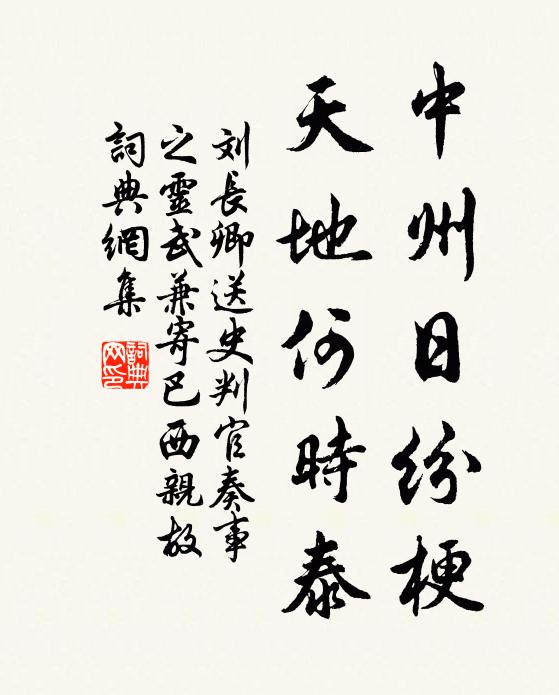 中州日紛梗
天地何時泰
刘長卿送史判官奏事
之靈武兼寄巴西親故
詞典網集
詞典
网印